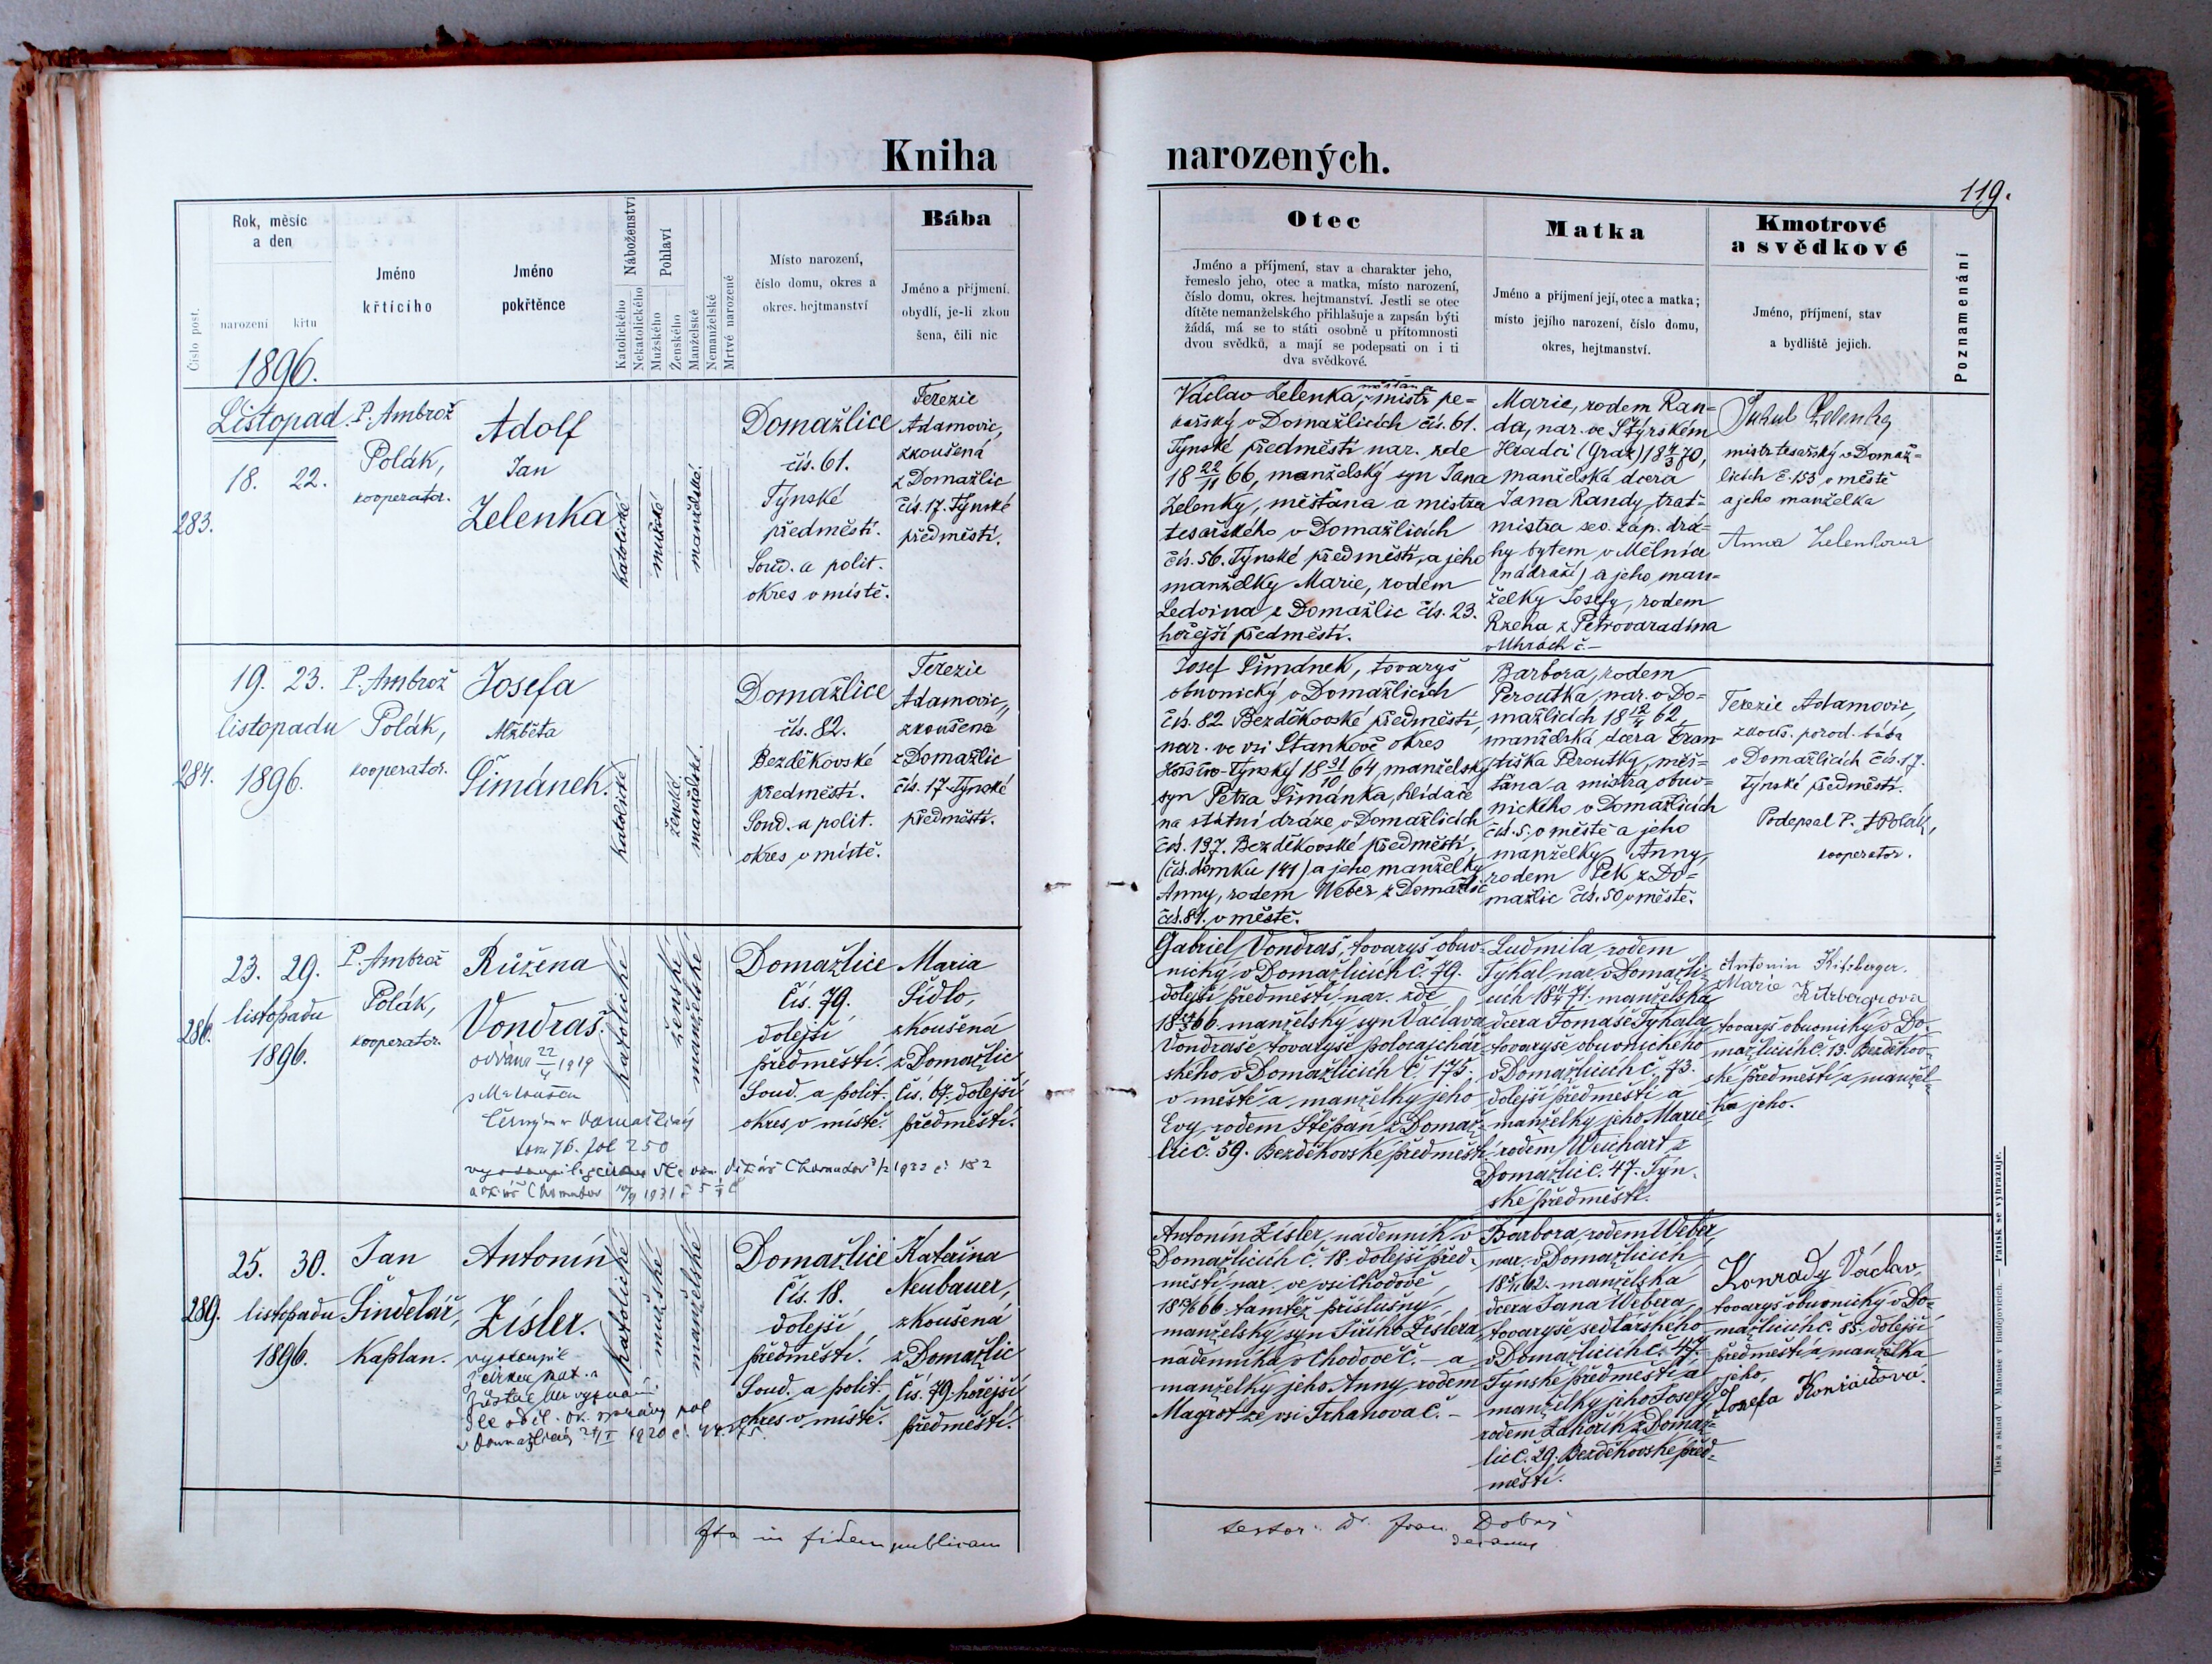 Kniha narozených.
119.
Číslo post.
Rok, měsíc
a den
narození křtu
1896.
Jméno
křtícího
Jméno
pokřtěnce
Náboženství
Katolického
Nekatolického
Pohlaví
Mužského
Ženského
Manželské
Nemanželské
Mrtvé narozené
Místo narození,
číslo domu, okres a
okres. hejtmanství
Bába
Jméno a příjmení,
obydlí, je-li zkou
šena, čili nic
Otec
Jméno a příjmení, stav a charakter jeho,
řemeslo jeho, otec a matka, místo narození,
číslo domu, okres. hejtmanství. Jestli se otec
dítěte nemanželského přihlašuje a zapsán býti
žádá, má se to státi osobně u přítomnosti
dvou svědků, a mají se podepsati on i ti
dva svědkové.
Matka
Jméno a příjmení její, otec a matka;
místo jejího narození, číslo domu,
okres, hejtmanství.
Kmotrové
a svědkové
Jméno, příjmení, stav
a bydliště jejich.
Poznamenání
283.
Listopad.
18. 22.
P. Ambrož
Polák,
kooperator.
Adolf
Jan
Zelenka
katolické
mužské
manželské
Domažlice
čís. 61.
Týnské
předměstí.
Soud. a polit.
okres v místě.
Terezie
Adamovic,
zkoušená
z Domažlic
čís. 17. Týnské
předměstí.
Václav Zelenka, měšťan a mistr pe=
kařský v Domažlicích čís. 61.
Týnské předměstí nar. zde
18 22/11 66, manželský syn Jana
Zelenky, měšťana a mistra
tesařského v Domažlicích
čís. 56. Týnské předměstí, a jeho
manželky Marie, rodem
Ledvina z Domažlic čís. 23.
hořejší předměstí.
Marie, rodem Ran=
da, nar. ve Štýrském
Hradci (Graz) 18 70,
manželská dcera
Jana Randy, trať=
mistra sev. záp. drá=
hy bytem v Mělníce
(nádraží) a jeho man=
želky Josefy, rodem
Rzeha z Petrovaradína
v Uhrách č. –
Jakub Zelenka
mistr tesařský v Domaž=
licích č. 155 v městě
a jeho manželka
Anna Zelenková
284.
19. 23.
listopadu
1896.
P. Ambrož
Polák,
kooperator.
Josefa
Alžběta
Šimánek.
katolické
ženské
manželské
Domažlice
čís. 82.
Bezděkovské
předměstí.
Soud. a polit.
okres v místě.
Terezie
Adamovic,
zkoušená
z Domažlic
čís. 17 Týnské
předměstí.
Josef Šimánek, tovaryš
obuvnický v Domažlicích
čís. 82 Bezděkovské předměstí,
nar. ve vsi Staňkově okres
Horšovo-Týnský 18 31/10 64, manželský
syn Petra Šimánka, hlídače
na státní dráze v Domažlicích
čís. 197. Bezděkovské předměstí,
(čís. domku 141) a jeho manželky
Anny, rodem Weber z Domažlic
čís. 81. v městě.
Barbora, rodem
Peroutka, nar. v Do=
mažlicích 18 62,
manželská dcera Fran
tiška Peroutky, měš=
ťana a mistra obuv=
nického v Domažlicích
čís. 5. v městě a jeho
manželky Anny,
rodem Pek z Do=
mažlic čís. 50 v městě.
Terezie Adamovic,
zkouš. porod. bába
v Domažlicích čís. 17.
Týnské předměstí.
Podepsal P. A Polák,
kooperator.
286.
23. 29.
listopadu
1896.
P. Ambrož
Polák,
kooperator.
Růžena
Vondraš.
oddána 22/ 1919
s Matoušem
Černým v Domažlicích
tom 76. fol 250
vystoupila 1932 č. 182
Chomutov 1931
katolické
ženské
manželské
Domažlice
Čís. 79.
dolejší
předměstí.
Soud. a polit.
okres v místě.
Maria
Sídlo,
zkoušená
z Domažlic
Čís. 67. dolejší
předměstí.
Gabriel Vondraš, tovaryš obuv=
nický v Domažlicích č. 79.
dolejší předměstí, nar. zde
18 66. manželský syn Václava
Vondraše, tovaryše
ského v Domažlicích č. 175.
v městě a manželky jeho
Evy, rodem Štěpán z Domaž=
lic č. 59. Bezděkovské předměstí.
Ludmila, rodem
Týkal nar. v Domažli=
cích 18 71. manželská
dcera Tomáše Týkala
tovaryše obuvnického
v Domažlicích č. 73.
dolejší předměstí a
manželky jeho Marie
rodem Weichart z
Domažlic č. 47. Týn.
ské předměstí.
Antonín Kitzberger.
Marie
Kitzbergrova
tovaryš obuvnický v Do=
mažlicích č. 13. Bezděkov=
ské předměstí a manžel=
ka jeho.
289.
25. 30.
listopadu
1896.
Jan
Šindelář,
Kaplan.
Antonín
Zisler.
vystoupil
z církve kat. a
zůstal bez vyznání
dle sděl. ok. správy pol.
v Domažlicích 1920 č.
katolické
mužské
manželské
Domažlice
Čís. 18.
dolejší
předměstí.
Soud. a polit.
okres v místě.
Kateřina
Neubauer,
zkoušená
z Domažlic
Čís. 79. hořejší
předměstí.
Antonín Zisler, nádenník v
Domažlicích č. 18. dolejší před=
městí, nar. ve vsi Chodově
18 66. tamtéž příslušný,
manželský syn Jiřího Zislera,
nádenníka v Chodově č. – a
manželky jeho Anny, rodem
Magrot ze vsi Trhanova č. –
Barbora, rodem Weber
nar. v Domažlicích
18 62. manželská
dcera Jana Webera,
tovaryše sedlářského
v Domažlicích č. 47.
Týnské předměstí a
manželky jeho Josefy
rodem Zahořík z Domaž=
lic č. 29. Bezděkovské před=
městí.
Konrady Václav
tovaryš obuvnický v Do=
mažlicích č. 85. dolejší
předměstí a manželka
jeho,
Josefa Konrádová.
Ita in fidem publicam
testor: Dr. Fran. Dobrý
decanus
Tisk a sklad V. Matouše v Budějovicích. — Patisk se vyhrazuje.